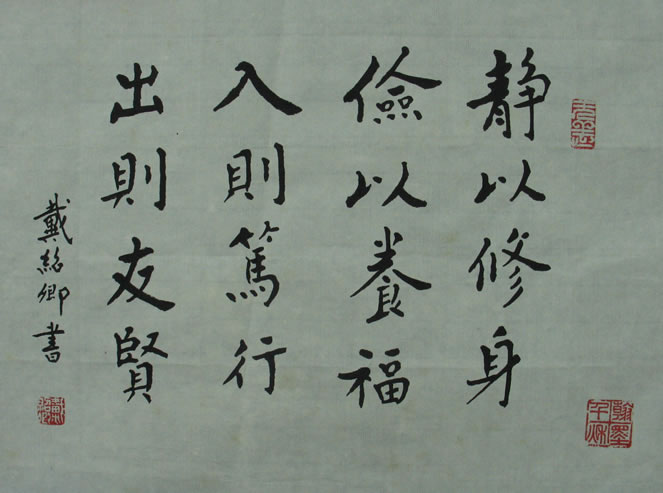 静以修身
儉以養福
入則篤行
出則友賢
戴紹卿書